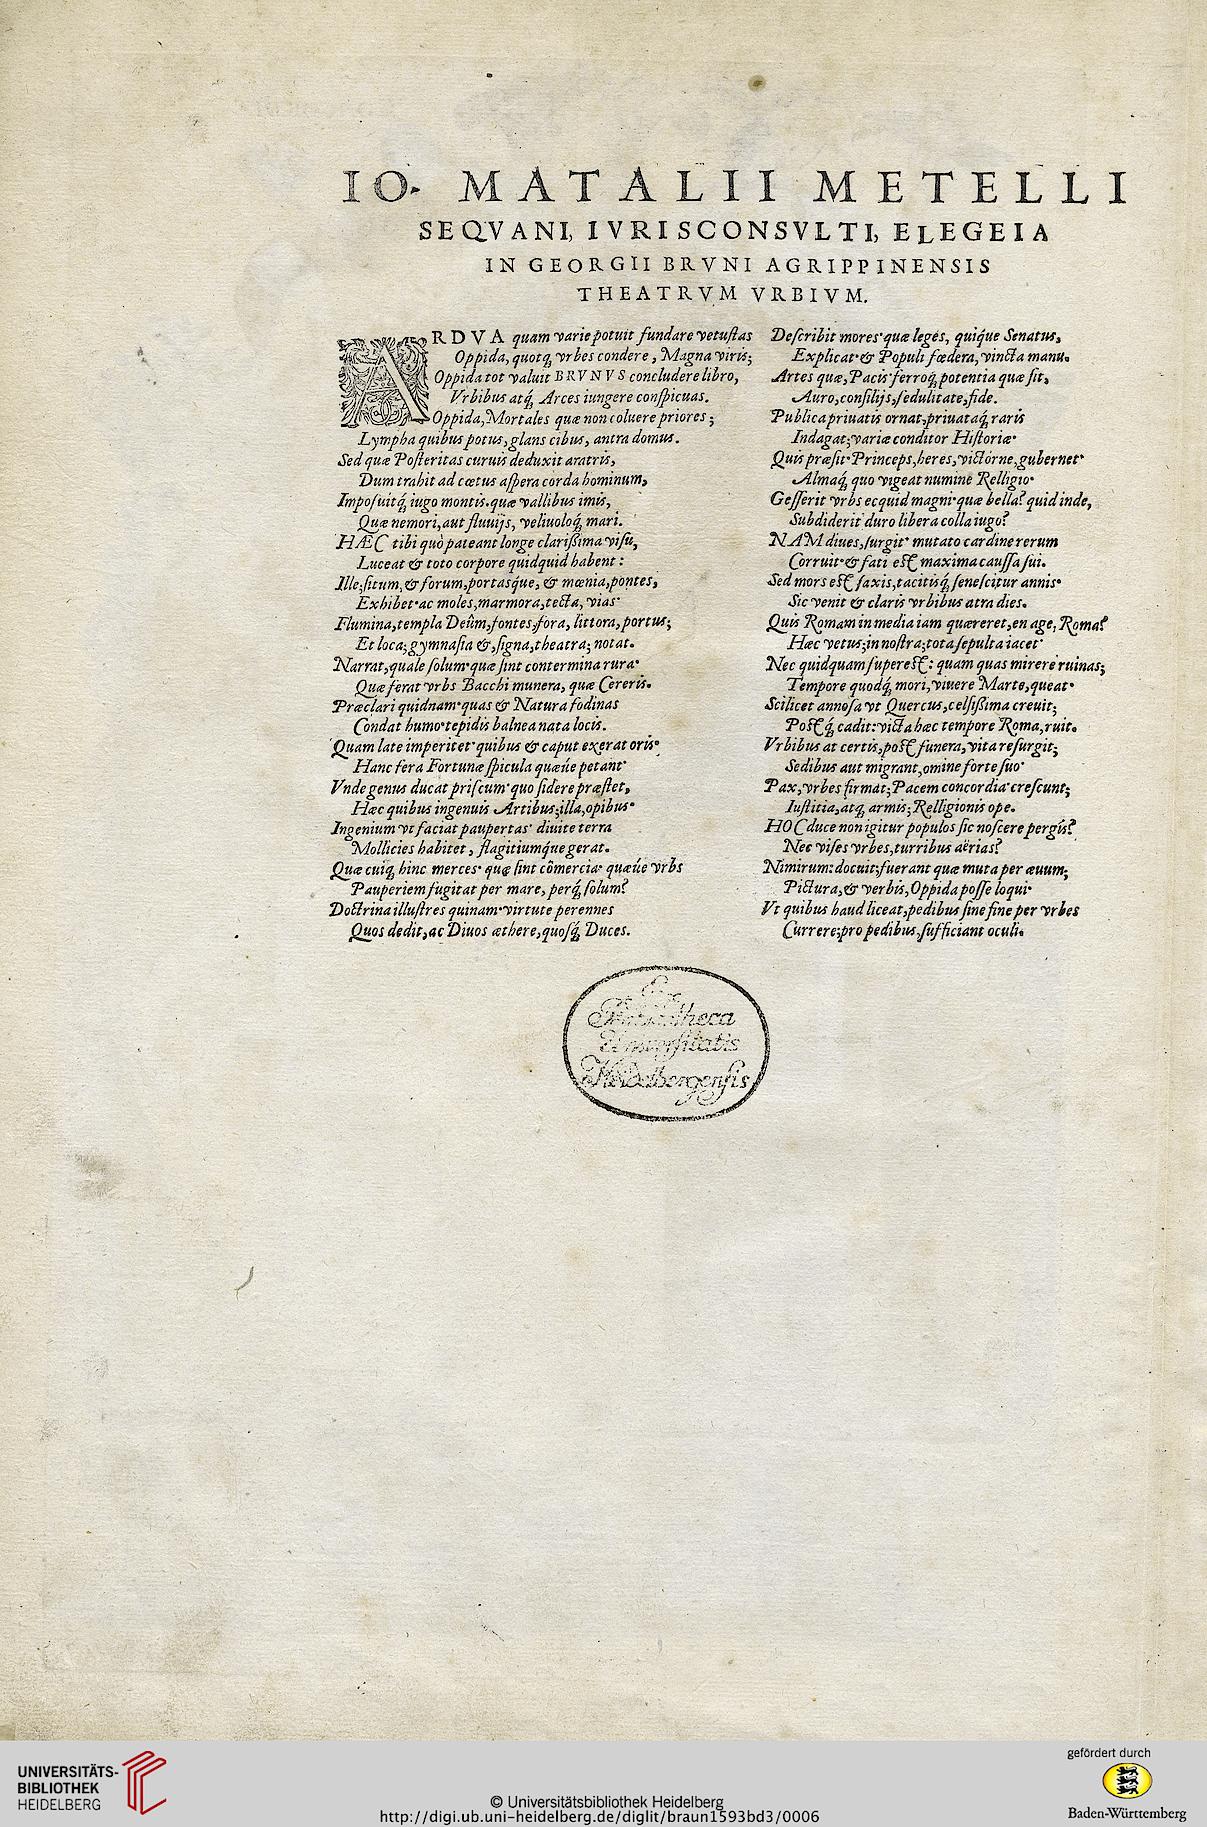 IO. MATALII METELLI
SEQVANI, IVRISCONSVLTI, ELEGEIA
IN GEORGII BRVNI AGRIPPINENSIS
THEATRVM VRBIVM.
ARDVA quam varie potuit fundare vetuſtas
Oppida, quotq́; vrbes condere, Magna viris;
Oppida tot valuit BRVNVS concludere libro,
Vrbibus atq́; Arces iungere conſpicuas.
Oppida, Mortales quæ non coluere priores;
Lympha quibus potus, glans cibus, antra domus.
Sed quæ Poſteritas curuis deduxit aratris,
Dum trahit ad cœtus aſpera corda hominum,
Impoſuitq́; iugo montis. quæ vallibus imis,
Quæ nemori, aut fluuijs, veliuoloq́; mari.
HÆC tibi quò pateant longe clariſſima viſu,
Luceat & toto corpore quidquid habent:
Ille; ſitum, & forum, portasq́ue, & mœnia, pontes,
Exhibet· ac moles, marmora, tecta, vias·
Flumina, templa Deûm, fontes, fora, littora, portus;
Et loca; gymnaſia &, ſigna, theatra; notat.
Narrat, quale ſolum· quæ ſint contermina rura·
Quæ ferat vrbs Bacchi munera, quæ Cereris.
Præclari quidnam· quas & Natura fodinas
Condat humo· tepidis balnea nata locis.
Quam late imperitet· quibus & caput exerat oris·
Hanc fera Fortunæ ſpicula quæúe petant·
Vnde genus ducat priſcum· quo ſidere præſtet,
Hæc quibus ingenuis Artibus; illa, opibus·
Ingenium vt faciat paupertas· diuite terra
Mollicies habitet, flagitiumq́ue gerat.
Quæ cuiq́; hinc merces· quæ ſint cōmercia· quæúe vrbs
Pauperiem fugitat per mare, perq́; ſolum?
Doctrina illuſtres quinam· virtute perennes
Quos dedit, ac Diuos æthere, quoſq́; Duces.
Deſcribit mores· quæ leges, quiq́ue Senatus,
Explicat· & Populi fœdera, vincta manu.
Artes quæ, Pacis· ferroq́; potentia quæ ſit,
Auro, conſilijs, ſedulitate, fide.
Publica priuatis ornat, priuataq́; raris
Indagat; variæ conditor Hiſtoriæ·
Quis præſit· Princeps, heres, victórne, gubernet·
Almaq́; quo vigeat numine Relligio·
Geſſerit vrbs ecquid magni· quæ bella? quid inde,
Subdiderit duro libera colla iugo?
NAM diues, ſurgit· mutato cardine rerum
Corruit· & fati eſt maxima cauſſa ſui.
Sed mors eſt ſaxis, tacitisq́; ſeneſcitur annis·
Sic venit & claris vrbibus atra dies.
Quis Romam in media iam quæreret, en age, Roma?
Hæc vetus; in noſtra; tota ſepulta iacet·
Nec quidquam ſupereſt: quam quas mirere ruinas;
Tempore quodq́; mori, viuere Marte, queat·
Scilicet annoſa vt Quercus, celſiſſima creuit;
Poſtq́; cadit: victa hæc tempore Roma, ruit.
Vrbibus at certis, poſt funera, vita reſurgit;
Sedibus aut migrant, omine forte ſuo·
Pax, vrbes firmat; Pacem concordia· creſcunt;
Iuſtitia, atq́; armis; Relligionis ope.
HOC duce non igitur populos ſic noſcere pergis?
Nec viſes vrbes, turribus aërias?
Nimirum: docuit; fuerant quæ muta per æuum;
Pictura, & verbis, Oppida poſſe loqui·
Vt quibus haud liceat, pedibus ſine fine per vrbes
Currere; pro pedibus, ſufficiant oculi.
Ex
Bibliotheca
Universitatis
Heidelbergensis
UNIVERSITÄTS-
BIBLIOTHEK
HEIDELBERG
© Universitätsbibliothek Heidelberg
http://digi.ub.uni-heidelberg.de/diglit/braun1593bd3/0006
gefördert durch
Baden-Württemberg